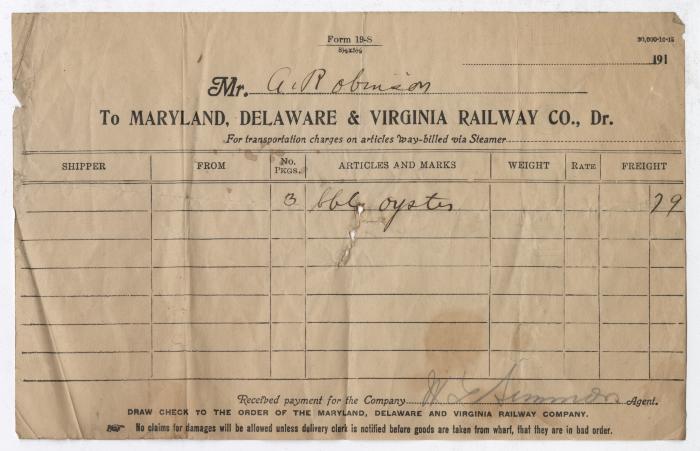 Form 19-S
5½x8½
30,000-10-15
191
Mr. A. Robinson
To MARYLAND, DELAWARE & VIRGINIA RAILWAY CO., Dr.
For transportation charges on articles way-billed via Steamer
SHIPPER FROM No. PKGS. ARTICLES AND MARKS WEIGHT RATE FREIGHT
3 bbls oyster 79
Received payment for the Company W Simmons Agent.
DRAW CHECK TO THE ORDER OF THE MARYLAND, DELAWARE AND VIRGINIA RAILWAY COMPANY.
No claims for damages will be allowed unless delivery clerk is notified before goods are taken from wharf, that they are in bad order.